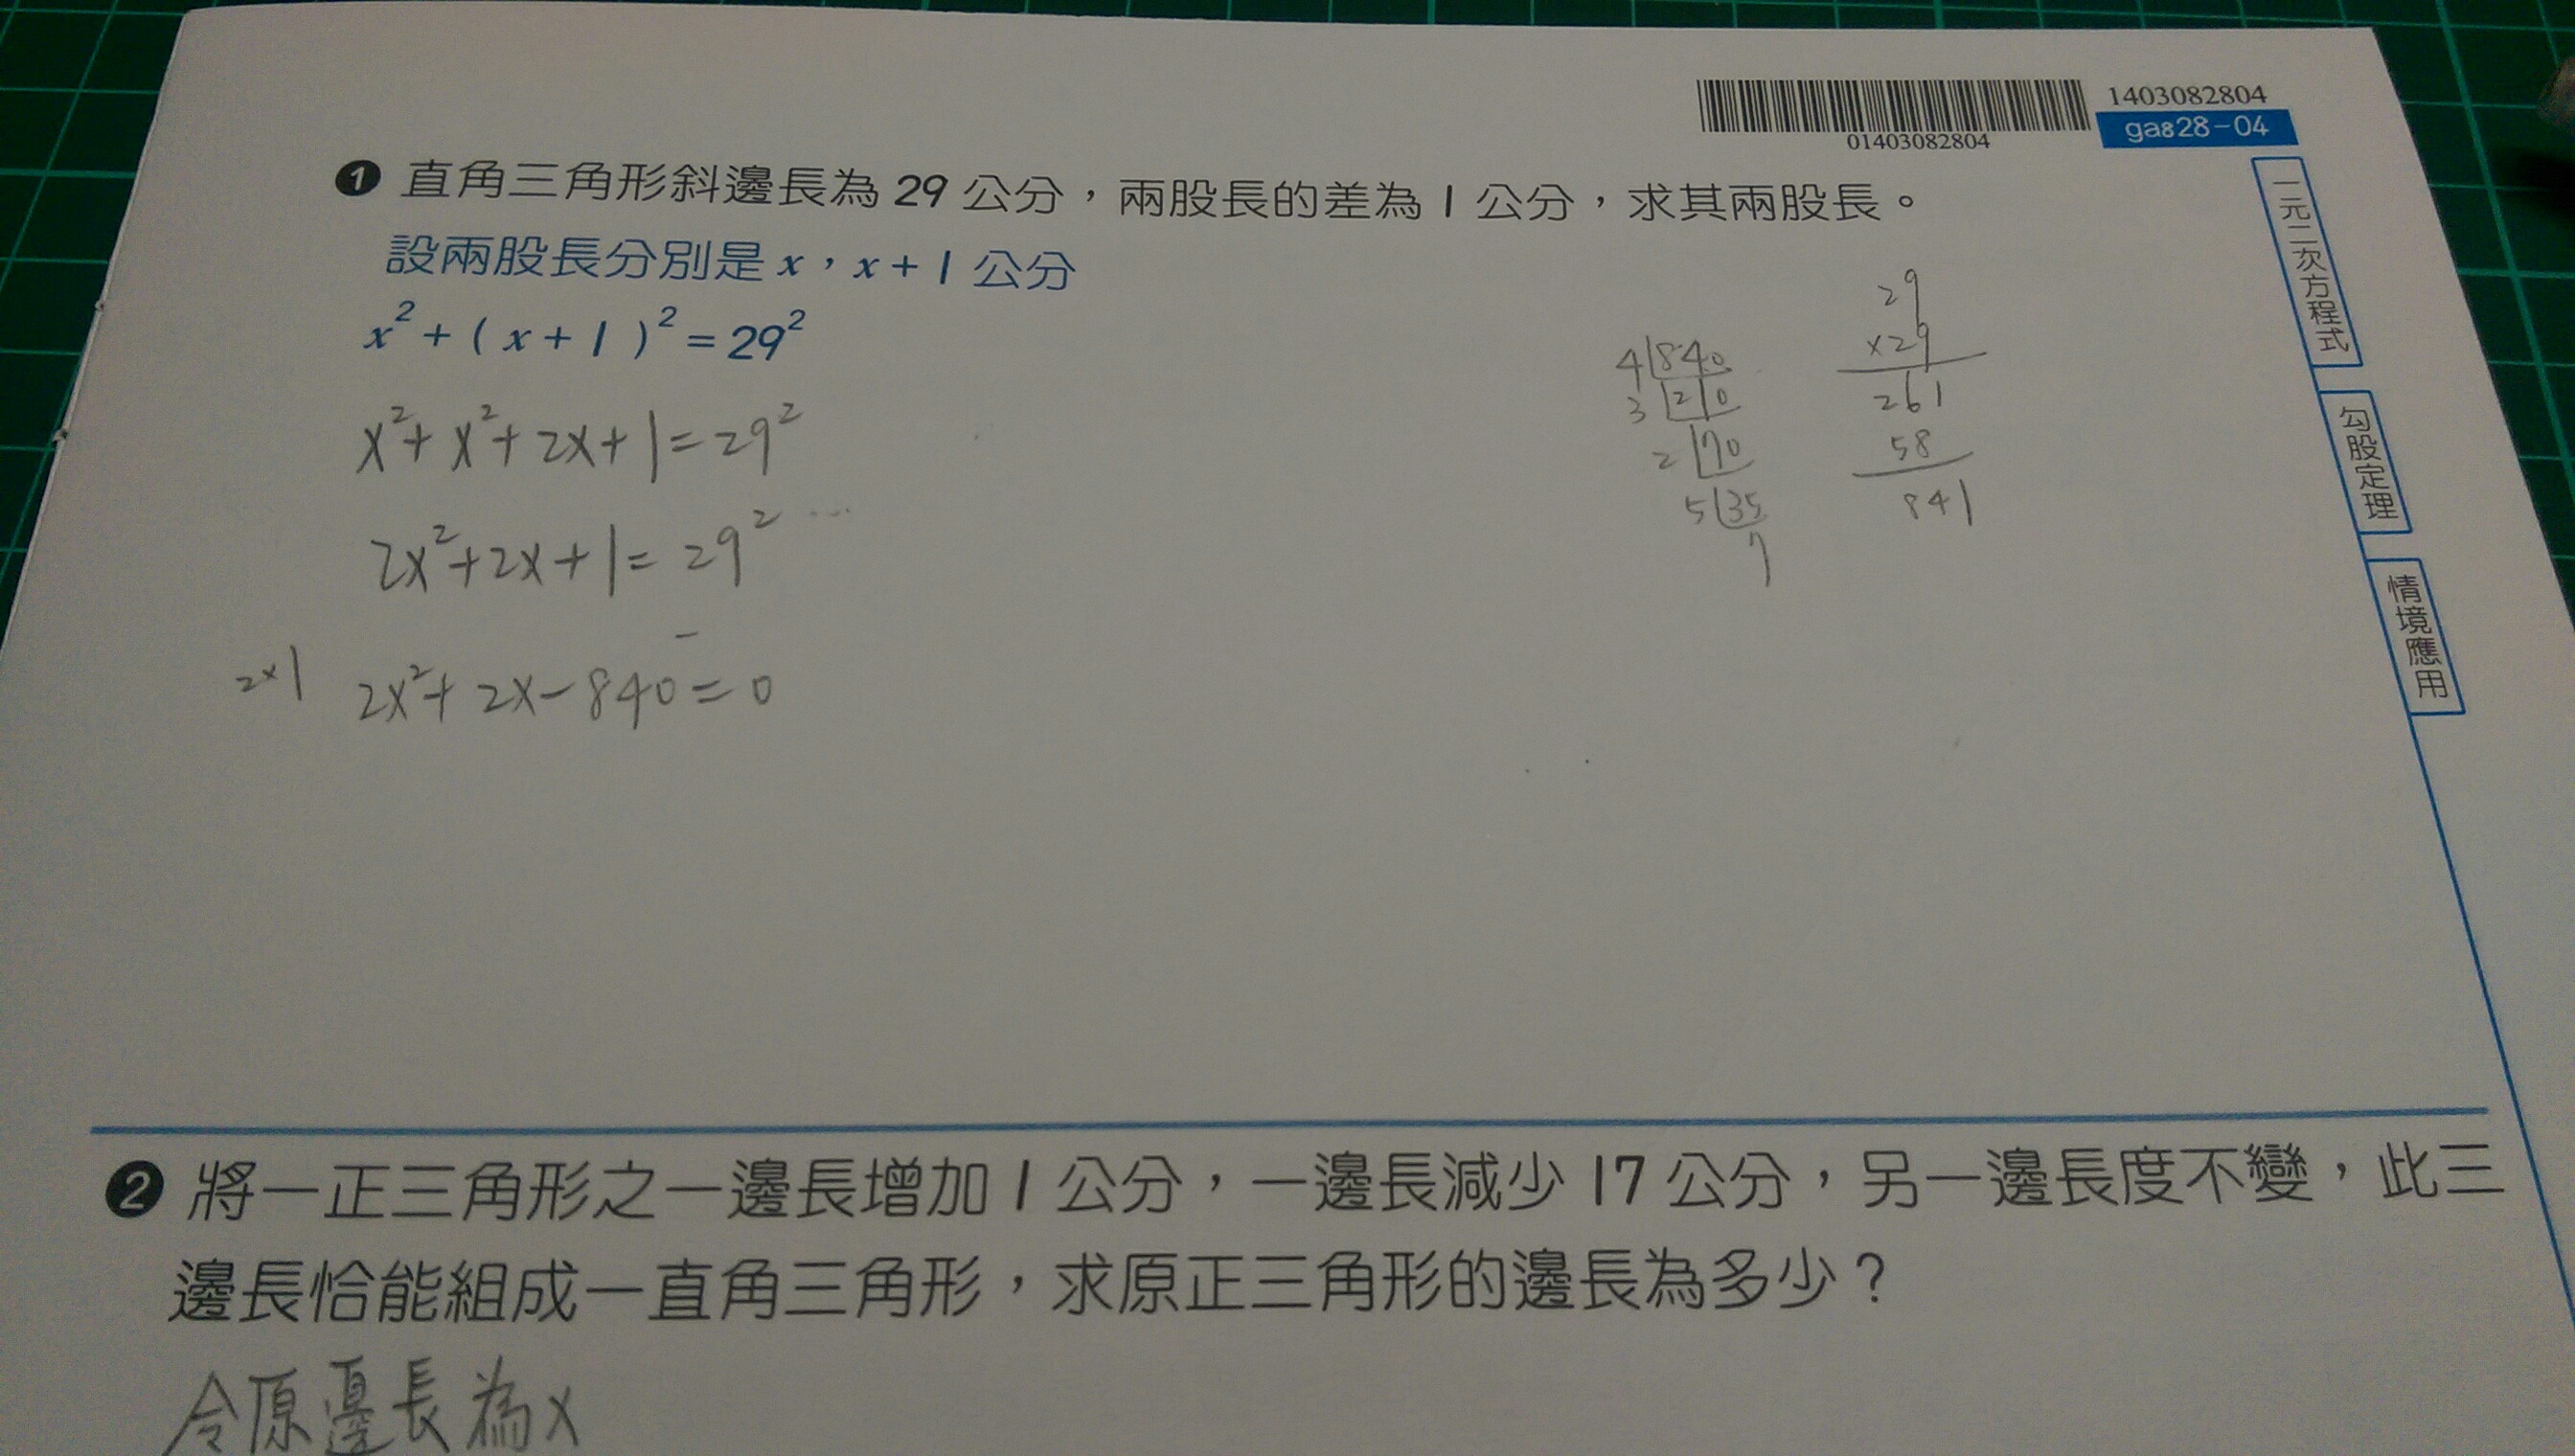 1403082804
01403082804
gas28-04
❶ 直角三角形斜邊長為 29 公分，兩股長的差為 1 公分，求其兩股長。
設兩股長分別是 x，x+1 公分
x²+(x+1)²=29²
x²+x²+2x+1=29²
2x²+2x+1=29²
2x1
2x²+2x-840=0
4 840
3 210
2 70
5 35
7
29
x29
261
58
841
一元二次方程式
勾股定理
情境應用
❷ 將一正三角形之一邊長增加 1 公分，一邊長減少 17 公分，另一邊長度不變，此三
邊長恰能組成一直角三角形，求原正三角形的邊長為多少？
令原邊長為x